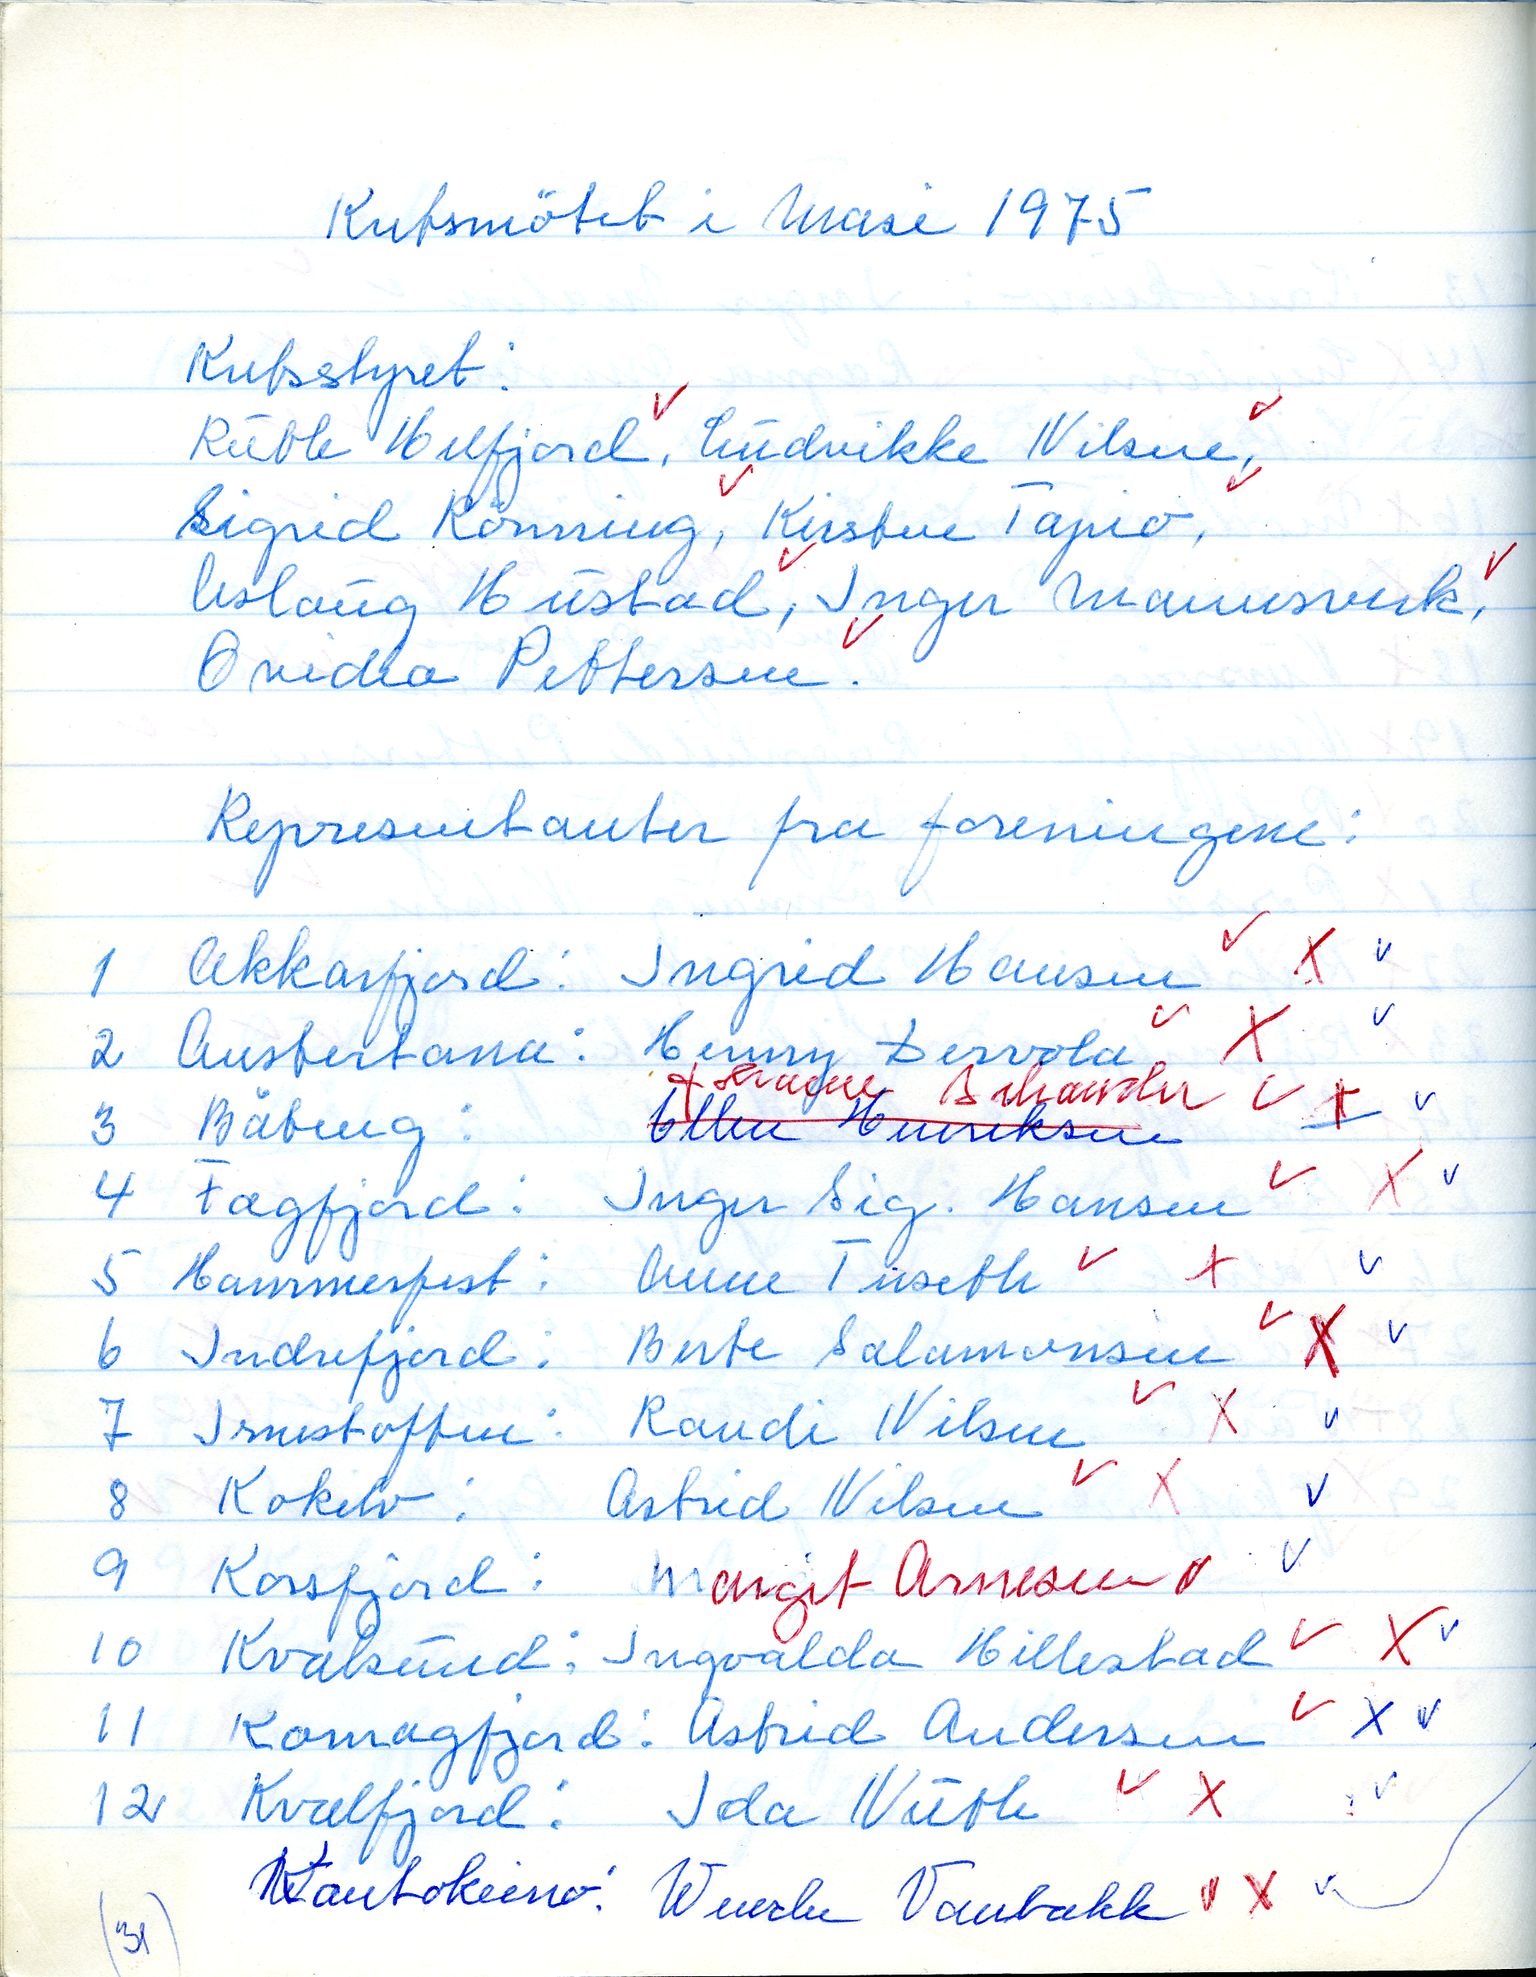 Kretsmötet i Masi 1975
Kretsstyret:
Ruth Helfjord, Ludvikke Nilsen,
Sigrid Rönning, Kirsten Tapio,
Aslaug Hustad, Inger Mannsverk,
Ovidia Pettersen.
Representanter fra foreningene:
1 Akkarfjord: Ingrid Hansen
2 Austertana: Henny Dervola
Schander
3 Båteng: Ellen Henriksen
4 Fægfjord: Inger Sig. Hansen
5 Hammerfest: Anne Tuseth
6 Indrefjord: Berte Salamonsen
7 Irnestoften: Randi Nilsen
8 Kokelv: Astrid Nilsen
9 Korsfjord: Margit Arnesen
10 Kvalsund: Ingvalda Hillestad
11 Komagfjord: Astrid Andersen
12 Kvalfjord: Ida Nuth
Kautokeino: Wenche Vanbakk
(31)